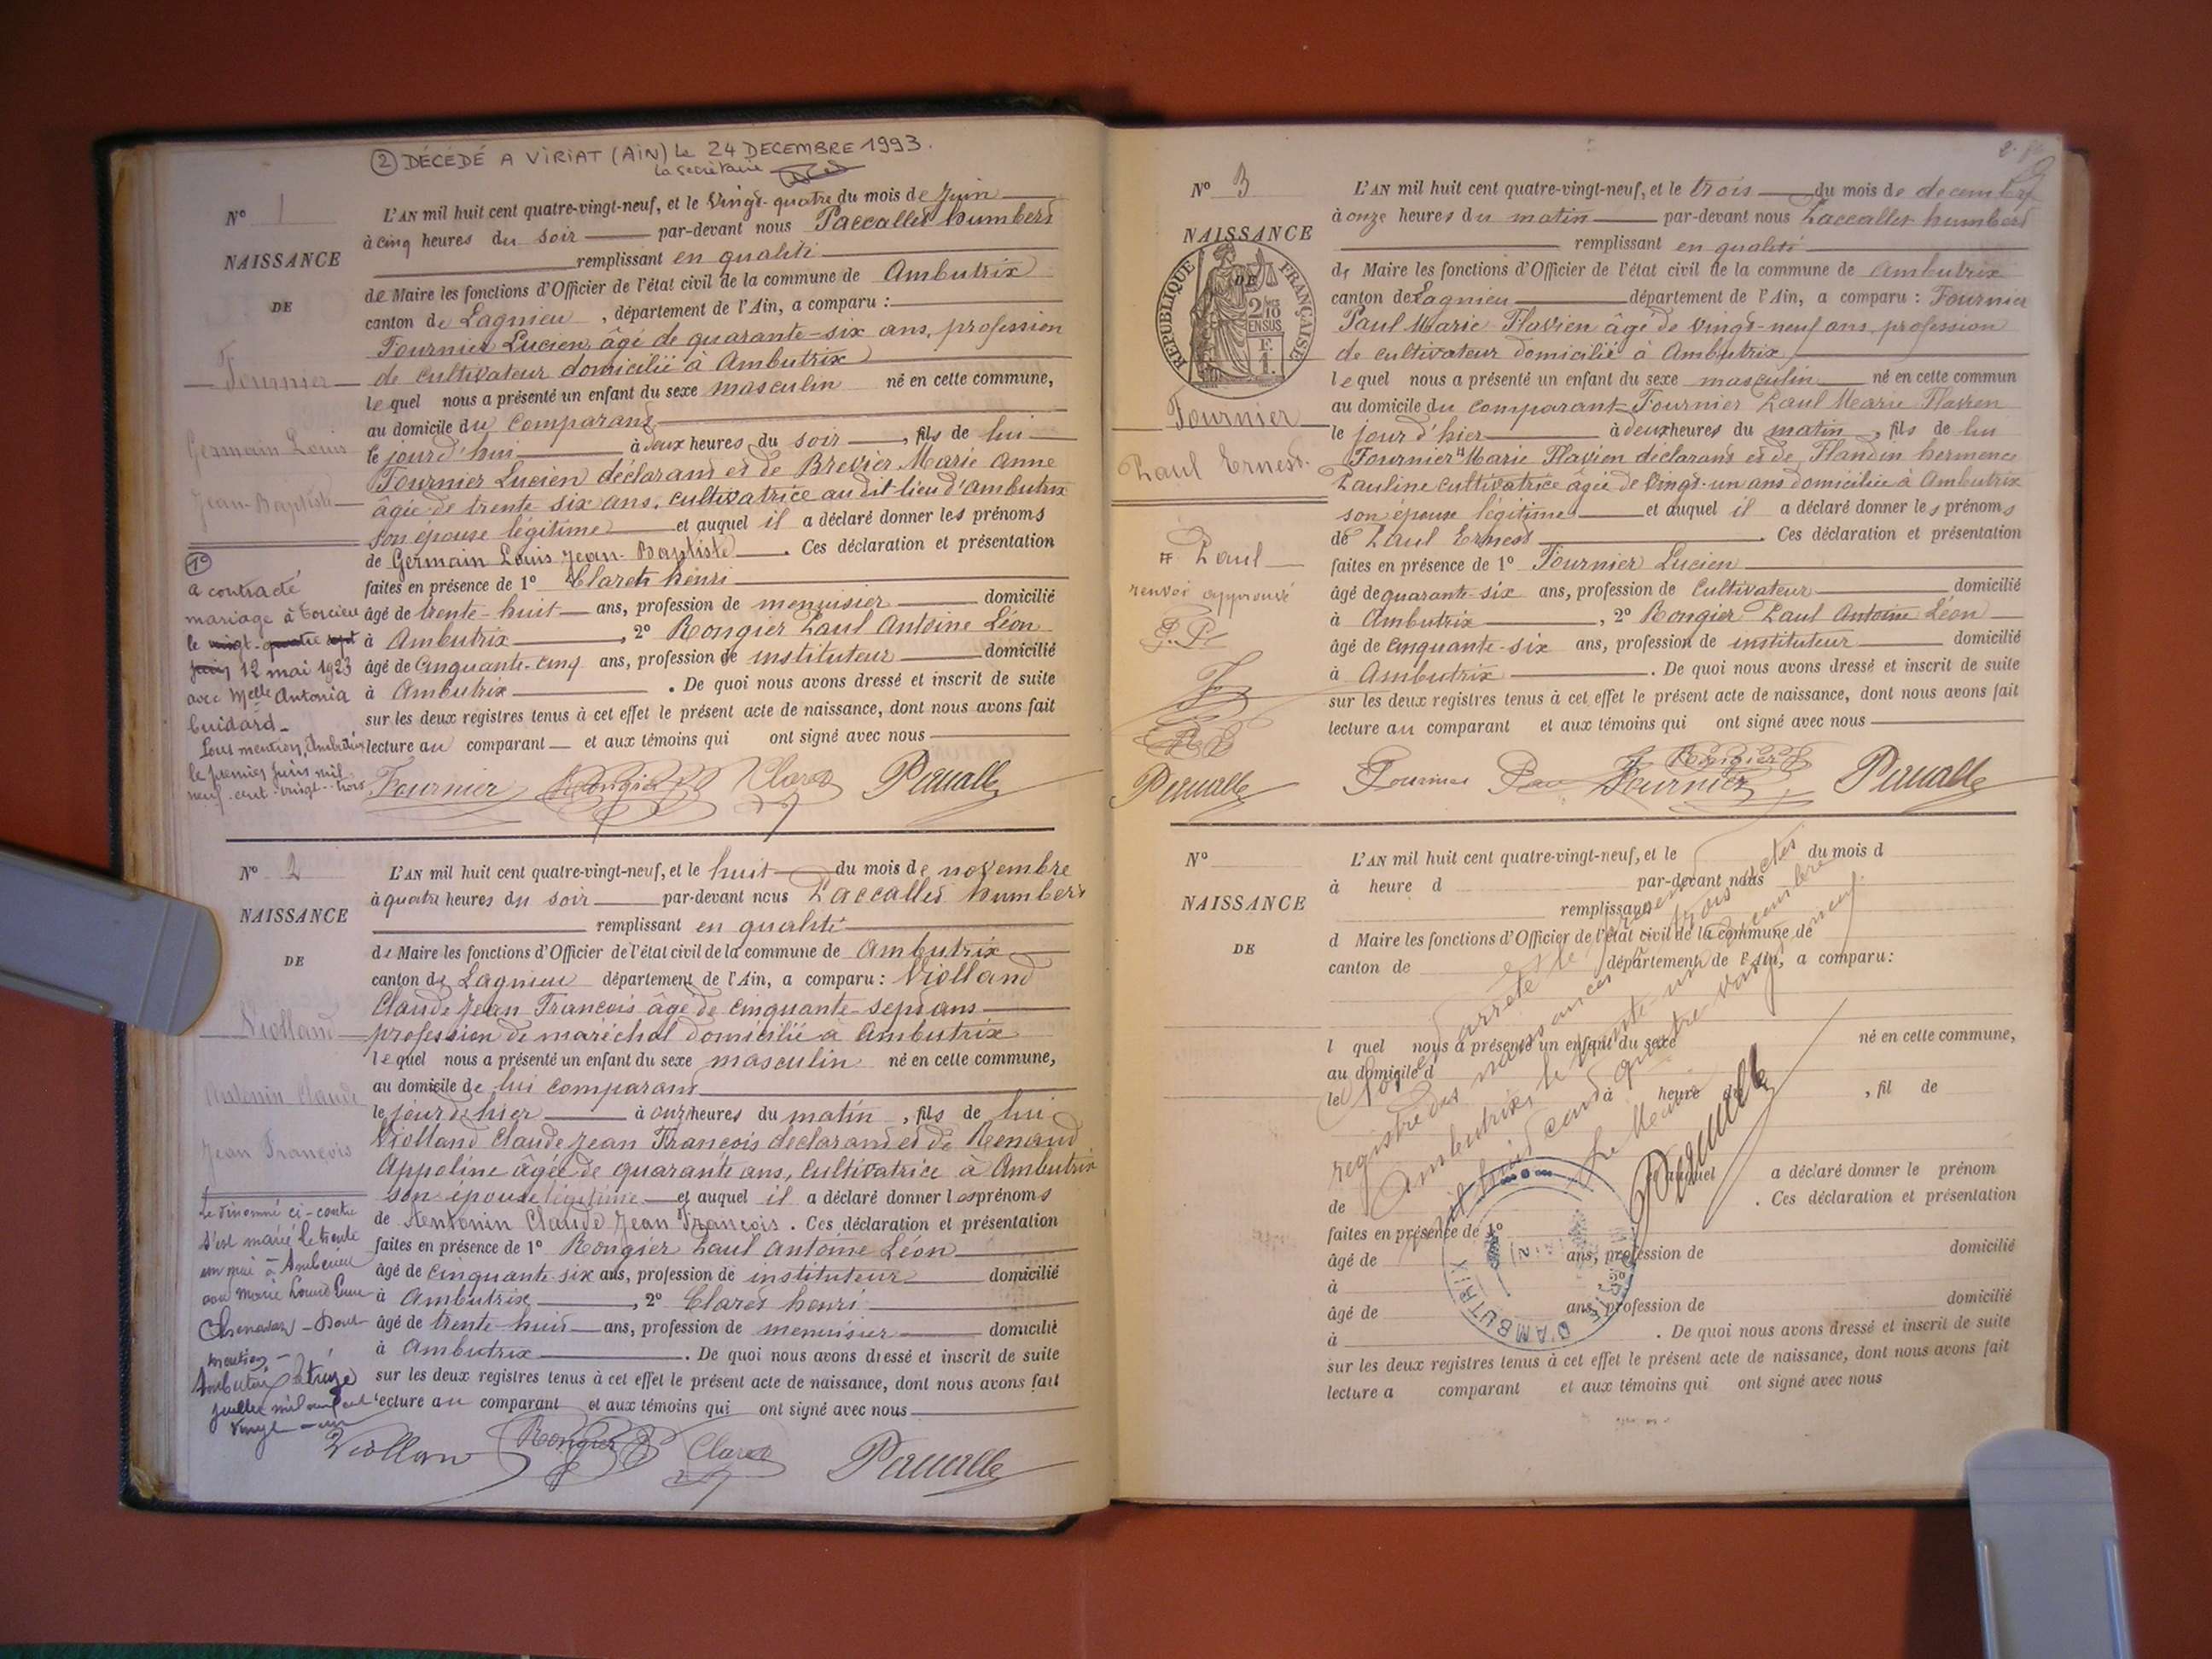 ② DÉCÉDÉ A VIRIAT (AIN) Le 24 DECEMBRE 1993.
La secrétaire
N° 1
NAISSANCE
DE
Fournier
Germain Louis
Jean-Baptiste
1°
a contracté
mariage à Torcieu
le vingt-quatre sept
juin 12 mai 1923
avec Melle Antonia
Guidard
Pour mention, Ambutrix
le premier juin mil
neuf cent vingt-trois
L'AN mil huit cent quatre-vingt-neuf, et le vingt-quatre du mois de Juin
à cinq heures du soir par-devant nous Paccallet humbert
remplissant en qualité
de Maire les fonctions d'Officier de l'état civil de la commune de Ambutrix
canton de Lagnieu, département de l'Ain, a comparu :
Fournier Lucien, âgé de quarante-six ans, profession
de cultivateur domicilié à Ambutrix
lequel nous a présenté un enfant du sexe masculin né en cette commune,
au domicile du comparant
le jourd'hui à deux heures du soir, fils de lui
Fournier Lucien déclarant et de Brevier Marie Anne
âgée de trente-six ans, cultivatrice au dit-lieu d'Ambutrix
son épouse légitime et auquel il a déclaré donner les prénoms
de Germain Louis Jean-Baptiste. Ces déclaration et présentation
faites en présence de 1° Claret henri
âgé de trente-huit ans, profession de menuisier domicilié
à Ambutrix, 2° Rongier Paul Antoine Léon
âgé de cinquante-cinq ans, profession de instituteur domicilié
à Ambutrix. De quoi nous avons dressé et inscrit de suite
sur les deux registres tenus à cet effet le présent acte de naissance, dont nous avons fait
lecture au comparant et aux témoins qui ont signé avec nous
Fournier Rongier Claret
N° 2
NAISSANCE
DE
Violland
Antonin Claude
Jean François
Le dénommé ci-contre
s'est marié le trente
un mai à Ambérieu
avec Marie Louise
mention
Ambutrix le treize
juillet mil neuf cent
vingt-un
L'AN mil huit cent quatre-vingt-neuf, et le huit du mois de novembre
à quatre heures du soir par-devant nous Paccallet humbert
remplissant en qualité
de Maire les fonctions d'Officier de l'état civil de la commune de Ambutrix
canton de Lagnieu département de l'Ain, a comparu : Violland
Claude Jean François âgé de cinquante-sept ans
profession de maréchal domicilié à Ambutrix
lequel nous a présenté un enfant du sexe masculin né en cette commune,
au domicile de lui comparant
le jour d'hier à onze heures du matin, fils de lui
Violland Claude Jean François déclarant et de Renaud
Appoline âgée de quarante ans, cultivatrice à Ambutrix
son épouse légitime et auquel il a déclaré donner les prénoms
de Antonin Claude Jean François. Ces déclaration et présentation
faites en présence de 1° Rongier Paul Antoine Léon
âgé de cinquante-six ans, profession de instituteur domicilié
à Ambutrix, 2° Claret henri
âgé de trente-huit ans, profession de menuisier domicilié
à Ambutrix. De quoi nous avons dressé et inscrit de suite
sur les deux registres tenus à cet effet le présent acte de naissance, dont nous avons fait
lecture au comparant et aux témoins qui ont signé avec nous
Rongier Claret
N° 3
NAISSANCE
DE
RÉPUBLIQUE FRANÇAISE
2/10 EN SUS
F. 1.
Fournier
Paul Ernest.
Paul
renvoi approuvé
L'AN mil huit cent quatre-vingt-neuf, et le trois du mois de decembre
à onze heures du matin par-devant nous Paccallet humbert
remplissant en qualité
de Maire les fonctions d'Officier de l'état civil de la commune de Ambutrix
canton de Lagnieu département de l'Ain, a comparu : Fournier
Paul Marie Flavien âgé de vingt-neuf ans, profession
de cultivateur domicilié à Ambutrix
lequel nous a présenté un enfant du sexe masculin né en cette commun
au domicile du comparant Fournier Paul Marie Flavien
le jour d'hier à deux heures du matin, fils de lui
Fournier Marie Flavien déclarant et de Flandin hermence
Pauline cultivatrice âgée de vingt-un ans domiciliée à Ambutrix
son épouse légitime et auquel il a déclaré donner les prénoms
de Paul Ernest. Ces déclaration et présentation
faites en présence de 1° Fournier Lucien
âgé de quarante-six ans, profession de Cultivateur domicilié
à Ambutrix, 2° Rongier Paul Antoine Léon
âgé de cinquante-six ans, profession de instituteur domicilié
à Ambutrix. De quoi nous avons dressé et inscrit de suite
sur les deux registres tenus à cet effet le présent acte de naissance, dont nous avons fait
lecture au comparant et aux témoins qui ont signé avec nous
Fournier Rongier Fournier
N°
NAISSANCE
DE
L'AN mil huit cent quatre-vingt-neuf, et le du mois d
à heure d par-devant nous
remplissant
d Maire les fonctions d'Officier de l'état civil de la commune de
canton de département de l'Ain, a comparu :
l quel nous a présenté un enfant du sexe né en cette commune,
au domicile d
le à heure d, fil de
et auquel a déclaré donner le prénom
de. Ces déclaration et présentation
faites en présence de 1°
âgé de ans, profession de domicilié
à
âgé de ans, profession de domicilié
à. De quoi nous avons dressé et inscrit de suite
sur les deux registres tenus à cet effet le présent acte de naissance, dont nous avons fait
lecture a comparant et aux témoins qui ont signé avec nous
arrêté le présent
registre des naissances à trois actes
Ambutrix, le trente-un décembre
mil huit cent quatre-vingt-neuf.
Le Maire
MAIRIE D'AMBUTRIX